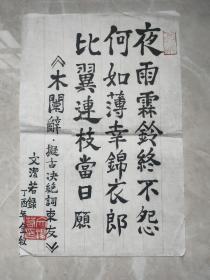 夜雨霖鈴終不怨
何如薄幸錦衣郎
比翼連枝當日願
《木闌辭·擬古决絕詞柬友》
文潔若錄
丁酉年金秋